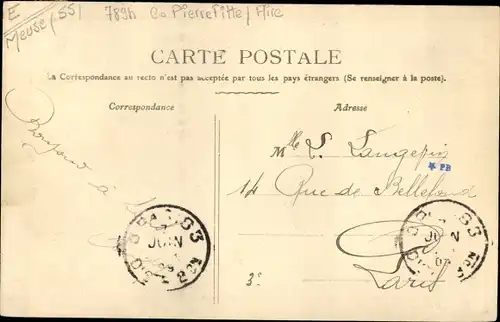 E
Meuse / 55
789h Co Pierrefitte / Aire
CARTE POSTALE
La Correspondance au recto n'est pas acceptée par tous les pays étrangers (Se renseigner à la poste).
Correspondance
Adresse
Bonjour à
Mlle L. Langepin
★ PB
14 Rue de Bellefond
Paris
JUIN
3c